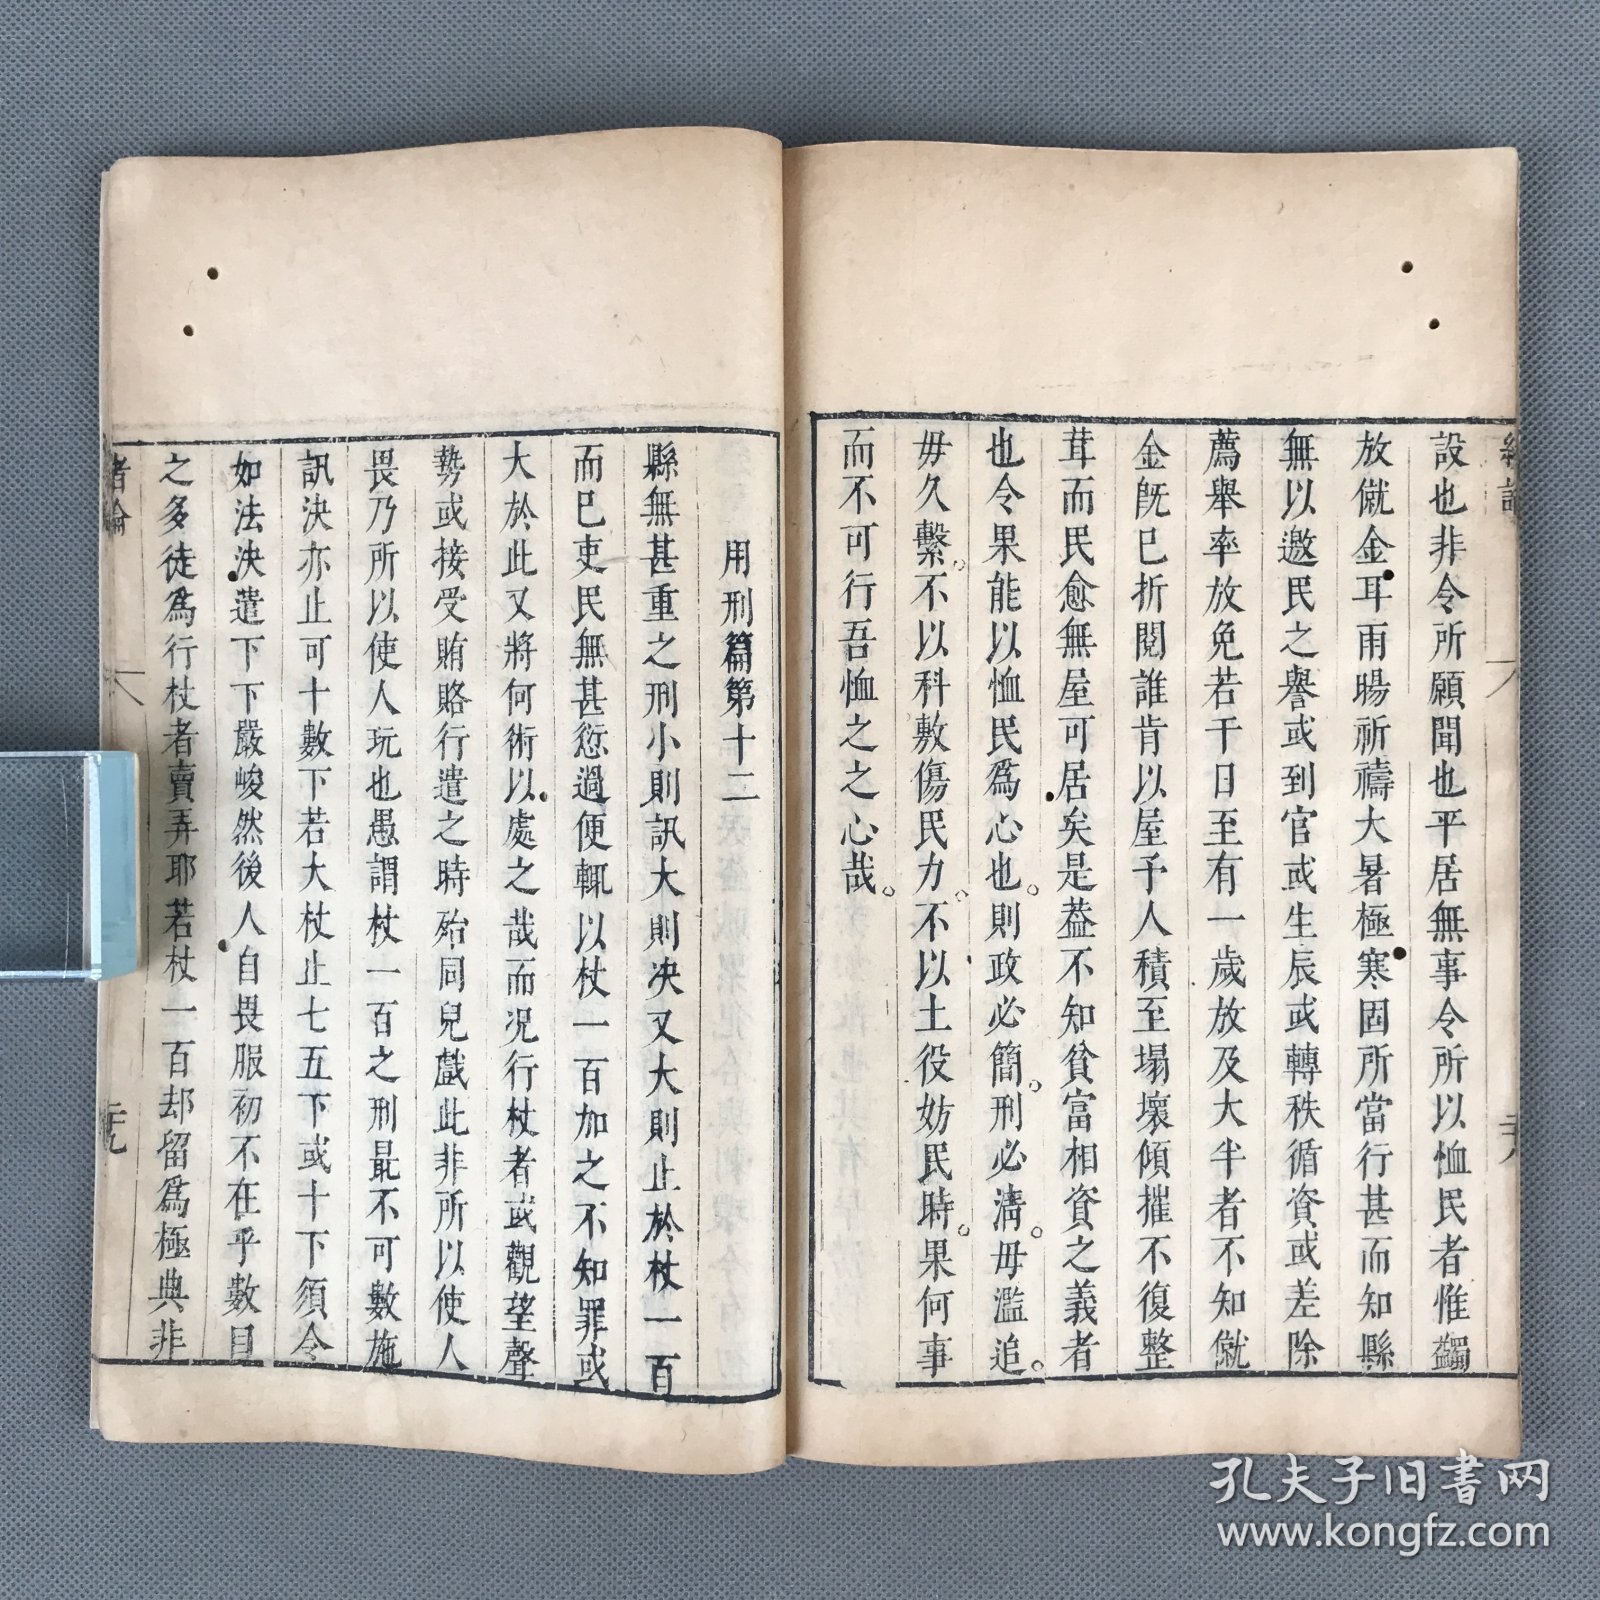 設也非令所願聞也平居無事令所以恤民者惟蠲
放僦金耳雨暘祈禱大暑極寒固所當行甚而知縣
無以邀民之譽或到官或生辰或轉秩循資或差除
薦舉率放免若干日至有一歲放及大半者不知僦
金旣已折閱誰肯以屋予人積至塌壞傾摧不復整
葺而民愈無屋可居矣是葢不知貧富相資之義者
也令果能以恤民爲心也。則政必簡。刑必淸。毋濫追。
毋久繫。不以科敷傷民力。不以土役妨民時。果何事
而不可行吾恤之之心哉。
用刑篇第十二
縣無甚重之刑小則訊大則决又大則止於杖一百
而已吏民無甚愆過便輒以杖一百加之不知罪或
大於此又將何術以處之哉而况行杖者或觀望聲
勢或接受賄賂行遣之時殆同兒戲此非所以使人
畏乃所以使人玩也愚謂杖一百之刑最不可數施
訊決亦止可十數下若大杖止七五下或十下須令
如法決遣下下嚴峻然後人自畏服初不在乎數目
之多徒爲行杖者賣弄耶若杖一百却留爲極典非
緒論
二九
孔夫子旧书网
www.kongfz.com